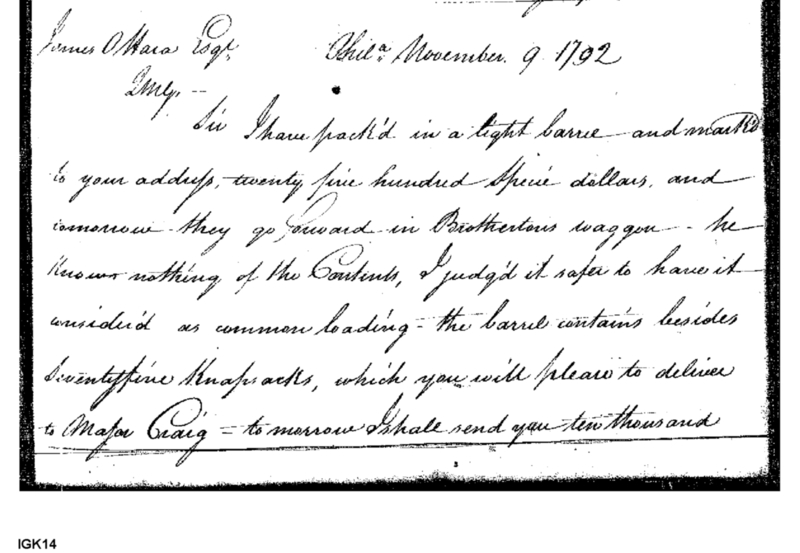 James OHara Esqr. Phila. November. 9 1792
QMG. --
Sir I have pack'd in a tight barrel and mark'd
to your address, twenty five hundred Specie dollars, and
tomorrow they go forward in Brothertons waggon - he
knows nothing of the Contents, I judg'd it safer to have it
consider'd as common loading - the barrel contains besides
Seventyfive Knapsacks, which you will please to deliver
to Major Craig - tomorrow I shall send you ten thousand
IGK14